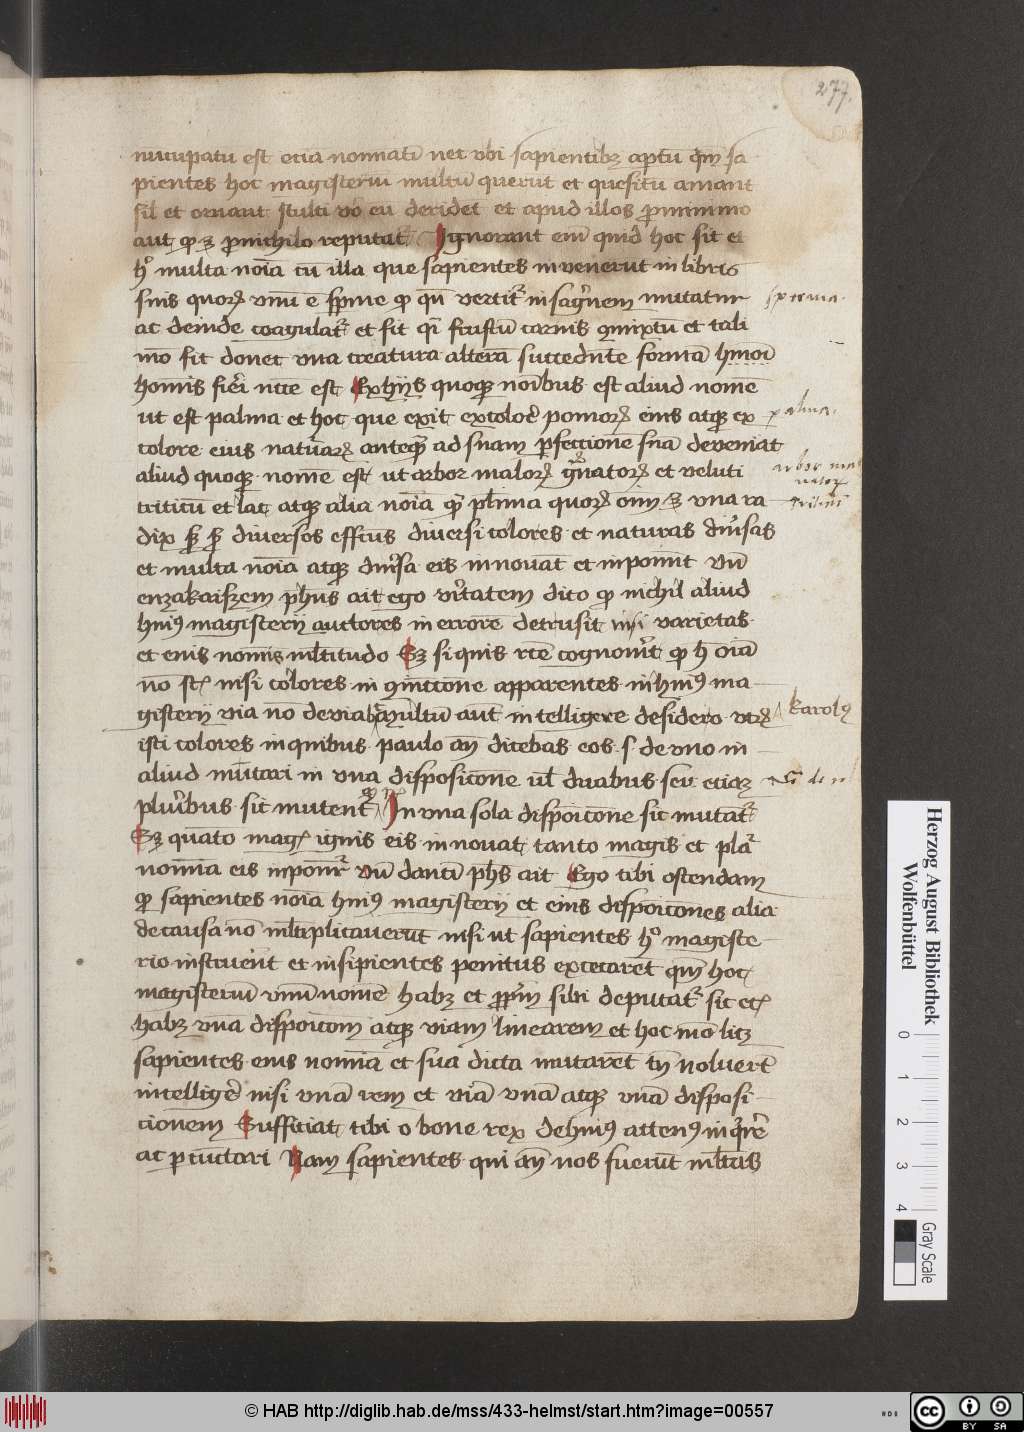 277.
nucupatu est etia nominati nec vbi sapientibz aptu qm sa
pientes hoc magisteriu multu querut et quesitu amant
sil et ornant stulti vo eu deridet et apud illos p minimo
aut qp sz p nichilo reputat Ignorant eni quid hoc sit et
ho multa noia cu illa que sapientes invenerut in libris
suis quor vnu e sperme qp qn vertitr in sagnem mutatur
sperma.
ac deinde coagulatr et fit qi frustu carnis 9mixtu et tali
mo fit donec vna creatura altera succedente forma hmoi
homis fieri ncce est Ex hijs quoqz noibus est aliud nome
ut est palma et hoc que exit ex coloe pomor eius atqz ex
palma.
colore eius naturar anteqz ad suam pfectione sua deveniat
aliud quoqz nome est ut arbor malor gnator et veluti
arbor ma
nator
triticu et lac atqz alia noia qz plima quor oim sz vna ra
triticu
dix sz diversos effctus diversi colores et naturas diusas
et multa noia atqz diusa eis innovat et inponut Vn
enzakaiszem phus ait ego vitatem dico qp nichil aliud
hui9 magisterij auctores in errore detrusit nisi varietas
et euis nomis mltitudo Sz si quis rcte cognovit qp h oia
no st nisi colores in 9nictione apparentes in hui9 ma
gisterij via no deviabit multu aut intelligere desidero vtr
karol9
isti colores in quibus paulo an dicebas eos s de vno in
aliud mutari in vna dispositione ul duabus seu eciaz
pluribus sic mutent In vna sola dispoicone sic mutatr
Sz quato mag ignis eis innovat tanto magis et pla
nomia eis inponutr vn danti phs ait Ego tibi ostendam
qp sapientes noia hui9 magisterij et eius dispoicones alia
de causa no mltiplicaverut nisi ut sapientes ho magiste
rio instruent et insipientes penitus excecaret qm hoc
magisteriu vnu nome habz et pprm sibi deputatr sic et
habz vna dispoicom atqz viam linearem et hoc mo licz
sapientes eius nomia et sua dicta mutaret tn noluert
intellige nisi vna rem et via vna atqz vna disposi
cionem Sufficiat tibi o bone rex de hui9 atten9 inqrere
ac p cuctori Nam sapientes qui an nos fuerut mltas
Herzog August Bibliothek
Wolfenbüttel
0 1 2 3 4
Gray Scale
© HAB http://diglib.hab.de/mss/433-helmst/start.htm?image=00557
cc BY SA